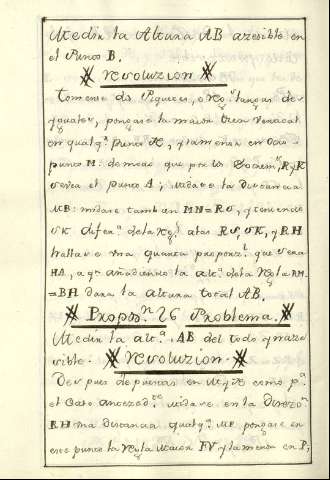 Medir la Altura AB azesible en
el Punto B.
revoluzion
tomense dos Piquetes, o reg.s largas des
yguales, pongase la maior
en qualq.a punto
punto M: de modo que por los R, y K
se vea el punto A; midase la distancia
MB: midase tambien MN=RO, y teniendo
OK difer.a de la reg.l a las RO, OK, y RH
hallare una quarta proporz.l que sera
HA, a q.e añadiendo la alt.a de la regla RM
=BH dara la altura total AB.
Propos.n 26 Problema.
Medir la alt.a AB del todo ynaze
sible. revoluzion.
Despues de puestas en M y como p.a
el Caso anczed.te midase en la direzo.n
BH una distancia qualq.a MP pongase en
este punto la regla maior FV y la menor en P,